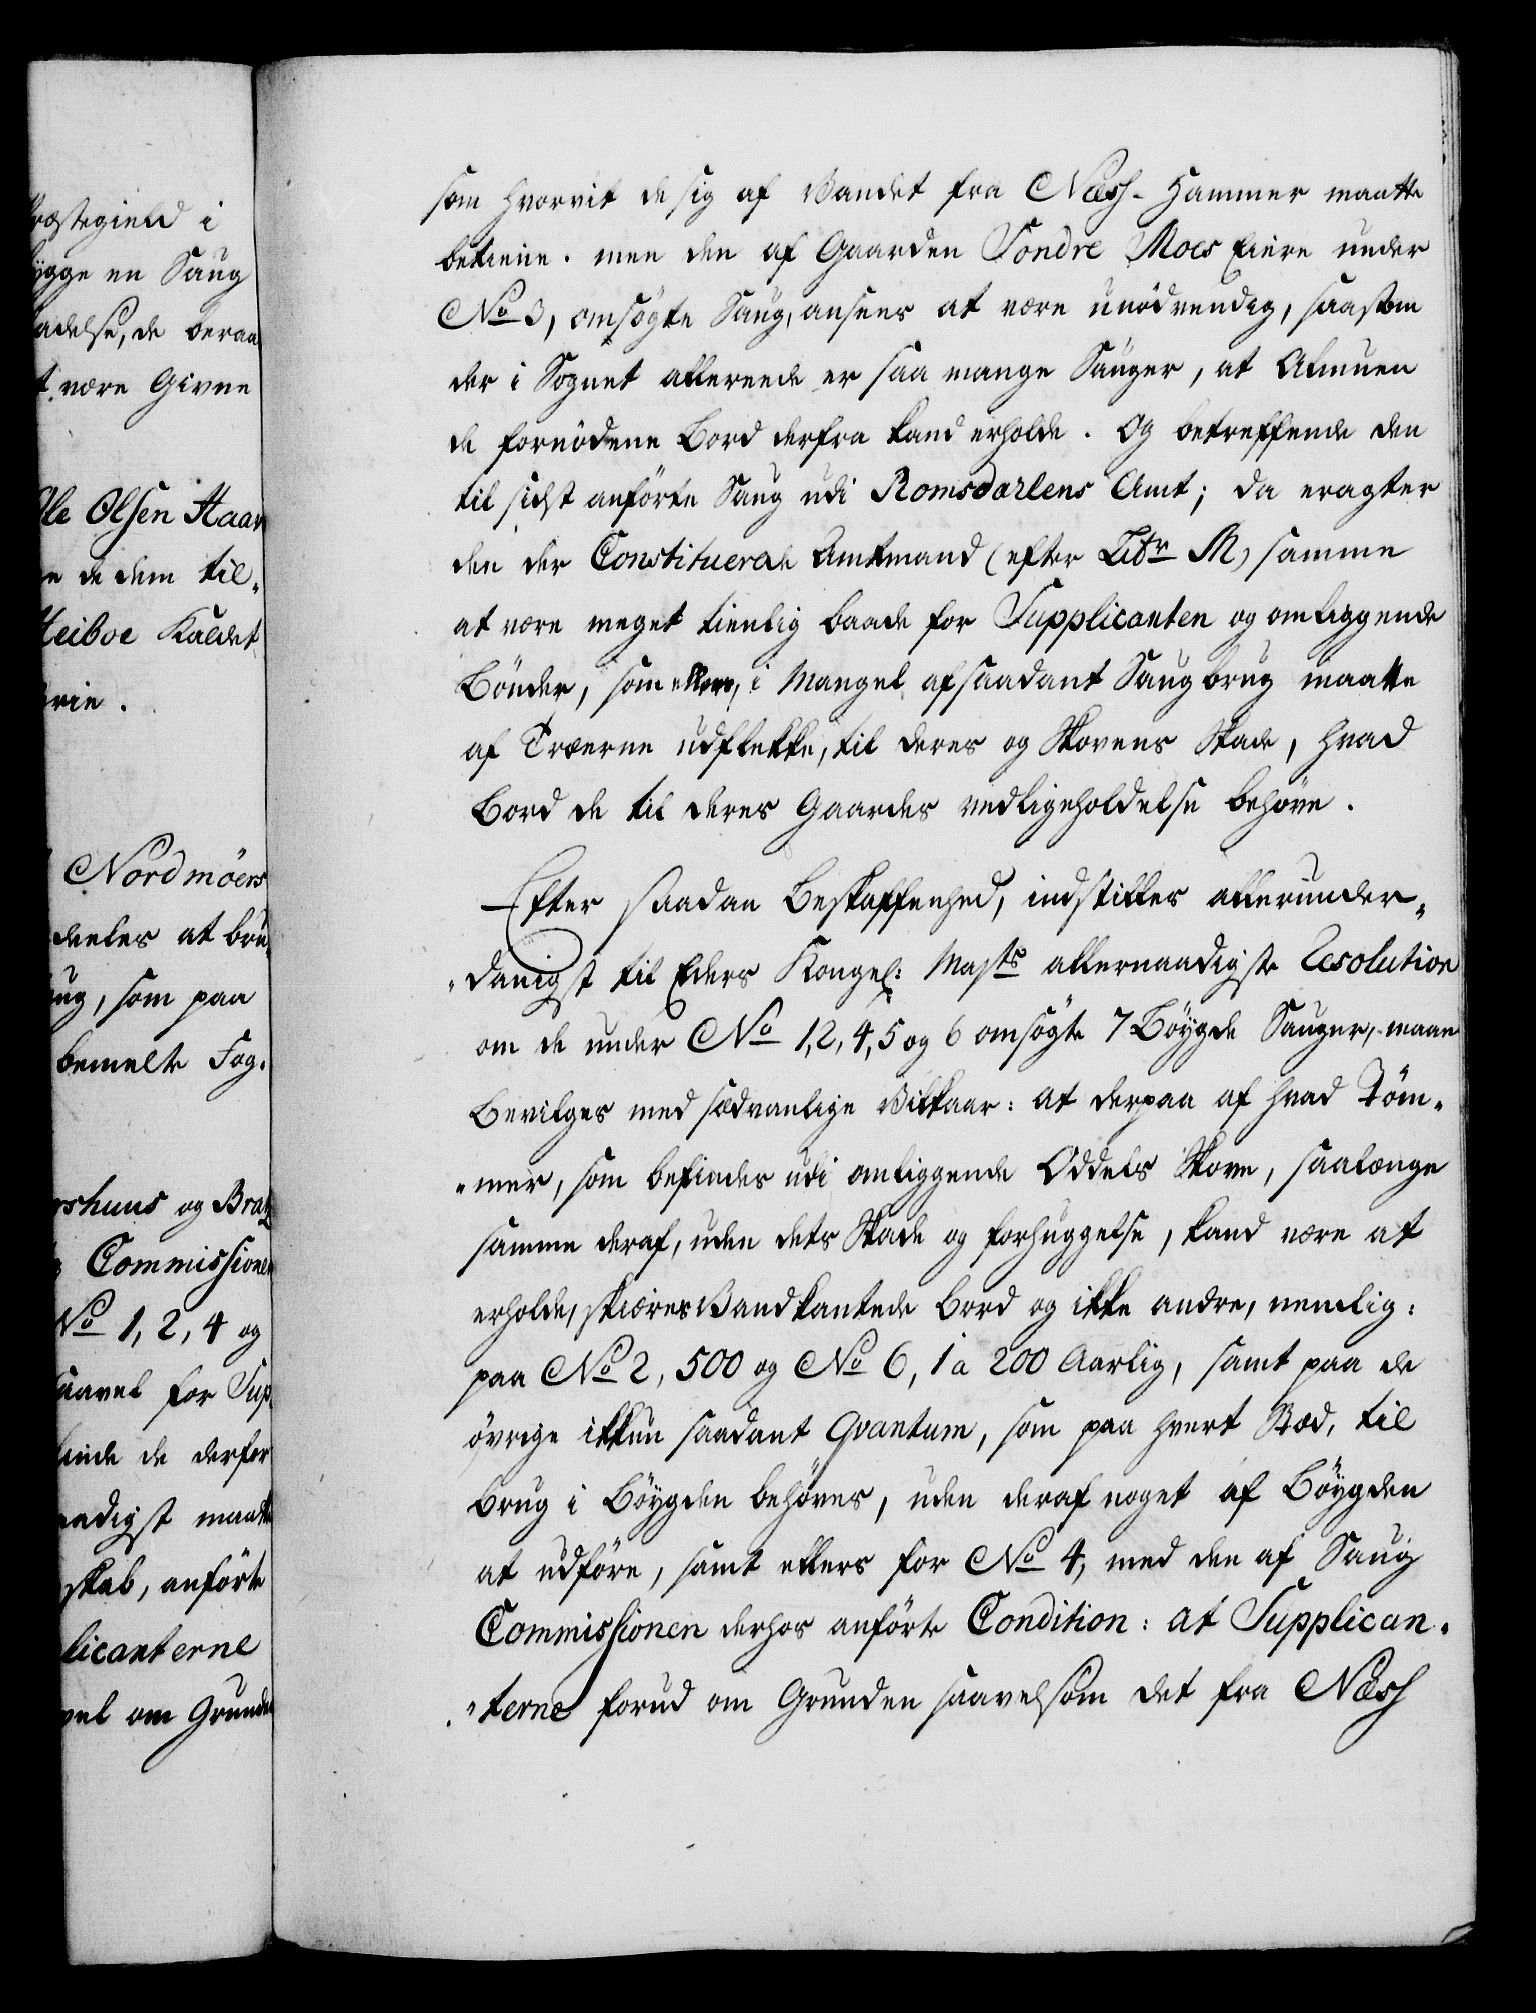 ræstegield i
ygge en Saug
adelse, de beraa
t være Givne
Ole Olsen Haar
e de dem til„
Heiboe Kaldet
erie.
Nordmöers
deeles at bru„
ug, som paa
bemelte Fog„
rshuus og Brat
Commissionen
No 1, 2, 4 og
saavel for Sup„
kunde de derfor
naadigst maatte
skab, anförte
licanterne
vel om Grunden
som hvorvit de sig af Vandet fra Næss-Hammer maatte
betiene. men den af Gaarden Söndre Moes Eiere under
No 3, omsögte Saug, ansees at være unödvendig, saasom
der i Sognet allereede er saa mange Sauger, at Almuen
de fornödene Bord derfra kand erholde. Og betreffende den
til sidst anförte Saug udi Romsdarlens Amt; da eragter
den der Constituerede Amtmand (efter Litr M) samme
at være meget tienlig baade for Supplicanten og omliggende
Bönder, som ellers, i Mangel af saadant Saugbrug maatte
af Træerne udflekke, til deres og Skovens Skade, hvad
Bord de til deres Gaardes vedligeholdelse behöve.
Efter saadan Beskaffenhed, indstilles allerunder„
„danigst til Eders Kongel: Majts allernaadigste Resolution
om de under No 1, 2, 4, 5 og 6 omsögte 7 Böygde Sauger, maae
Bevilges med sædvanlige Vilkaar: at derpaa af hvad Töm„
„mer, som befindes udi omliggende Oddels Skove, saalænge
samme deraf, uden dets Skade og forhuggelse, kand være at
erholde, skiæres Bandkantede Bord og ikke andre, nemlig:
paa No 2, 500 og No 6, 1 a 200 Aarlig, samt paa de
övrige ikkun saadant Qvantum, som paa hvert Stæd, til
Brug i Böygden behöves, uden deraf noget af Böygden
at udföre, samt ellers for No 4, med den af Saug
Commissionen derhos anförte Condition: at Supplican„
„terne forud om Grunden saavelsom det fra Næss